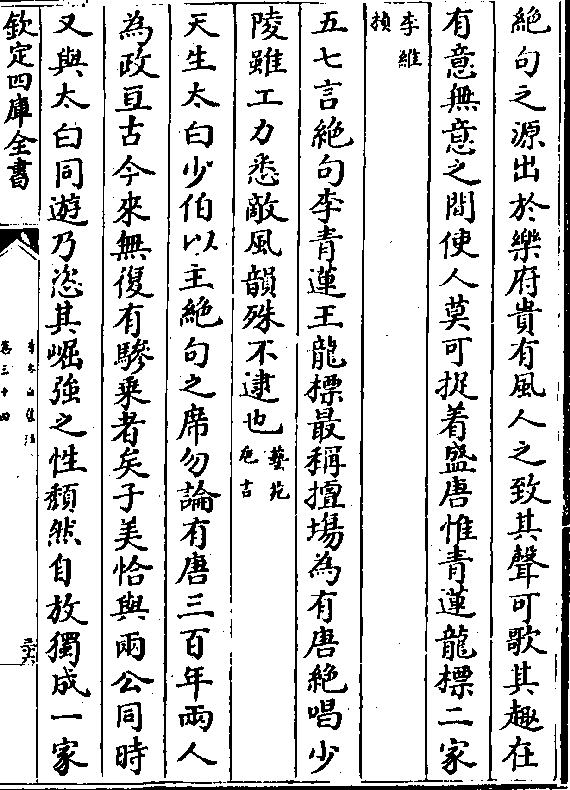 絶句之源出於樂府貴有風人之致其聲可歌其趣在
有意無意之間使人莫可捉着盛唐惟青蓮龍標二家
李維
楨
五七言絶句李青蓮王龍標最稱擅場為有唐絶唱少
陵雖工力悉敵風韻殊不逮也藝苑
巵言
天生太白少伯以主絶句之席勿論有唐三百年兩人
為政亘古今來無復有驂乘者矣子美恰與兩公同時
又與太白同遊乃恣其崛強之性頹然自放獨成一家
欽定四庫全書
李太白集注
卷三十四
三六